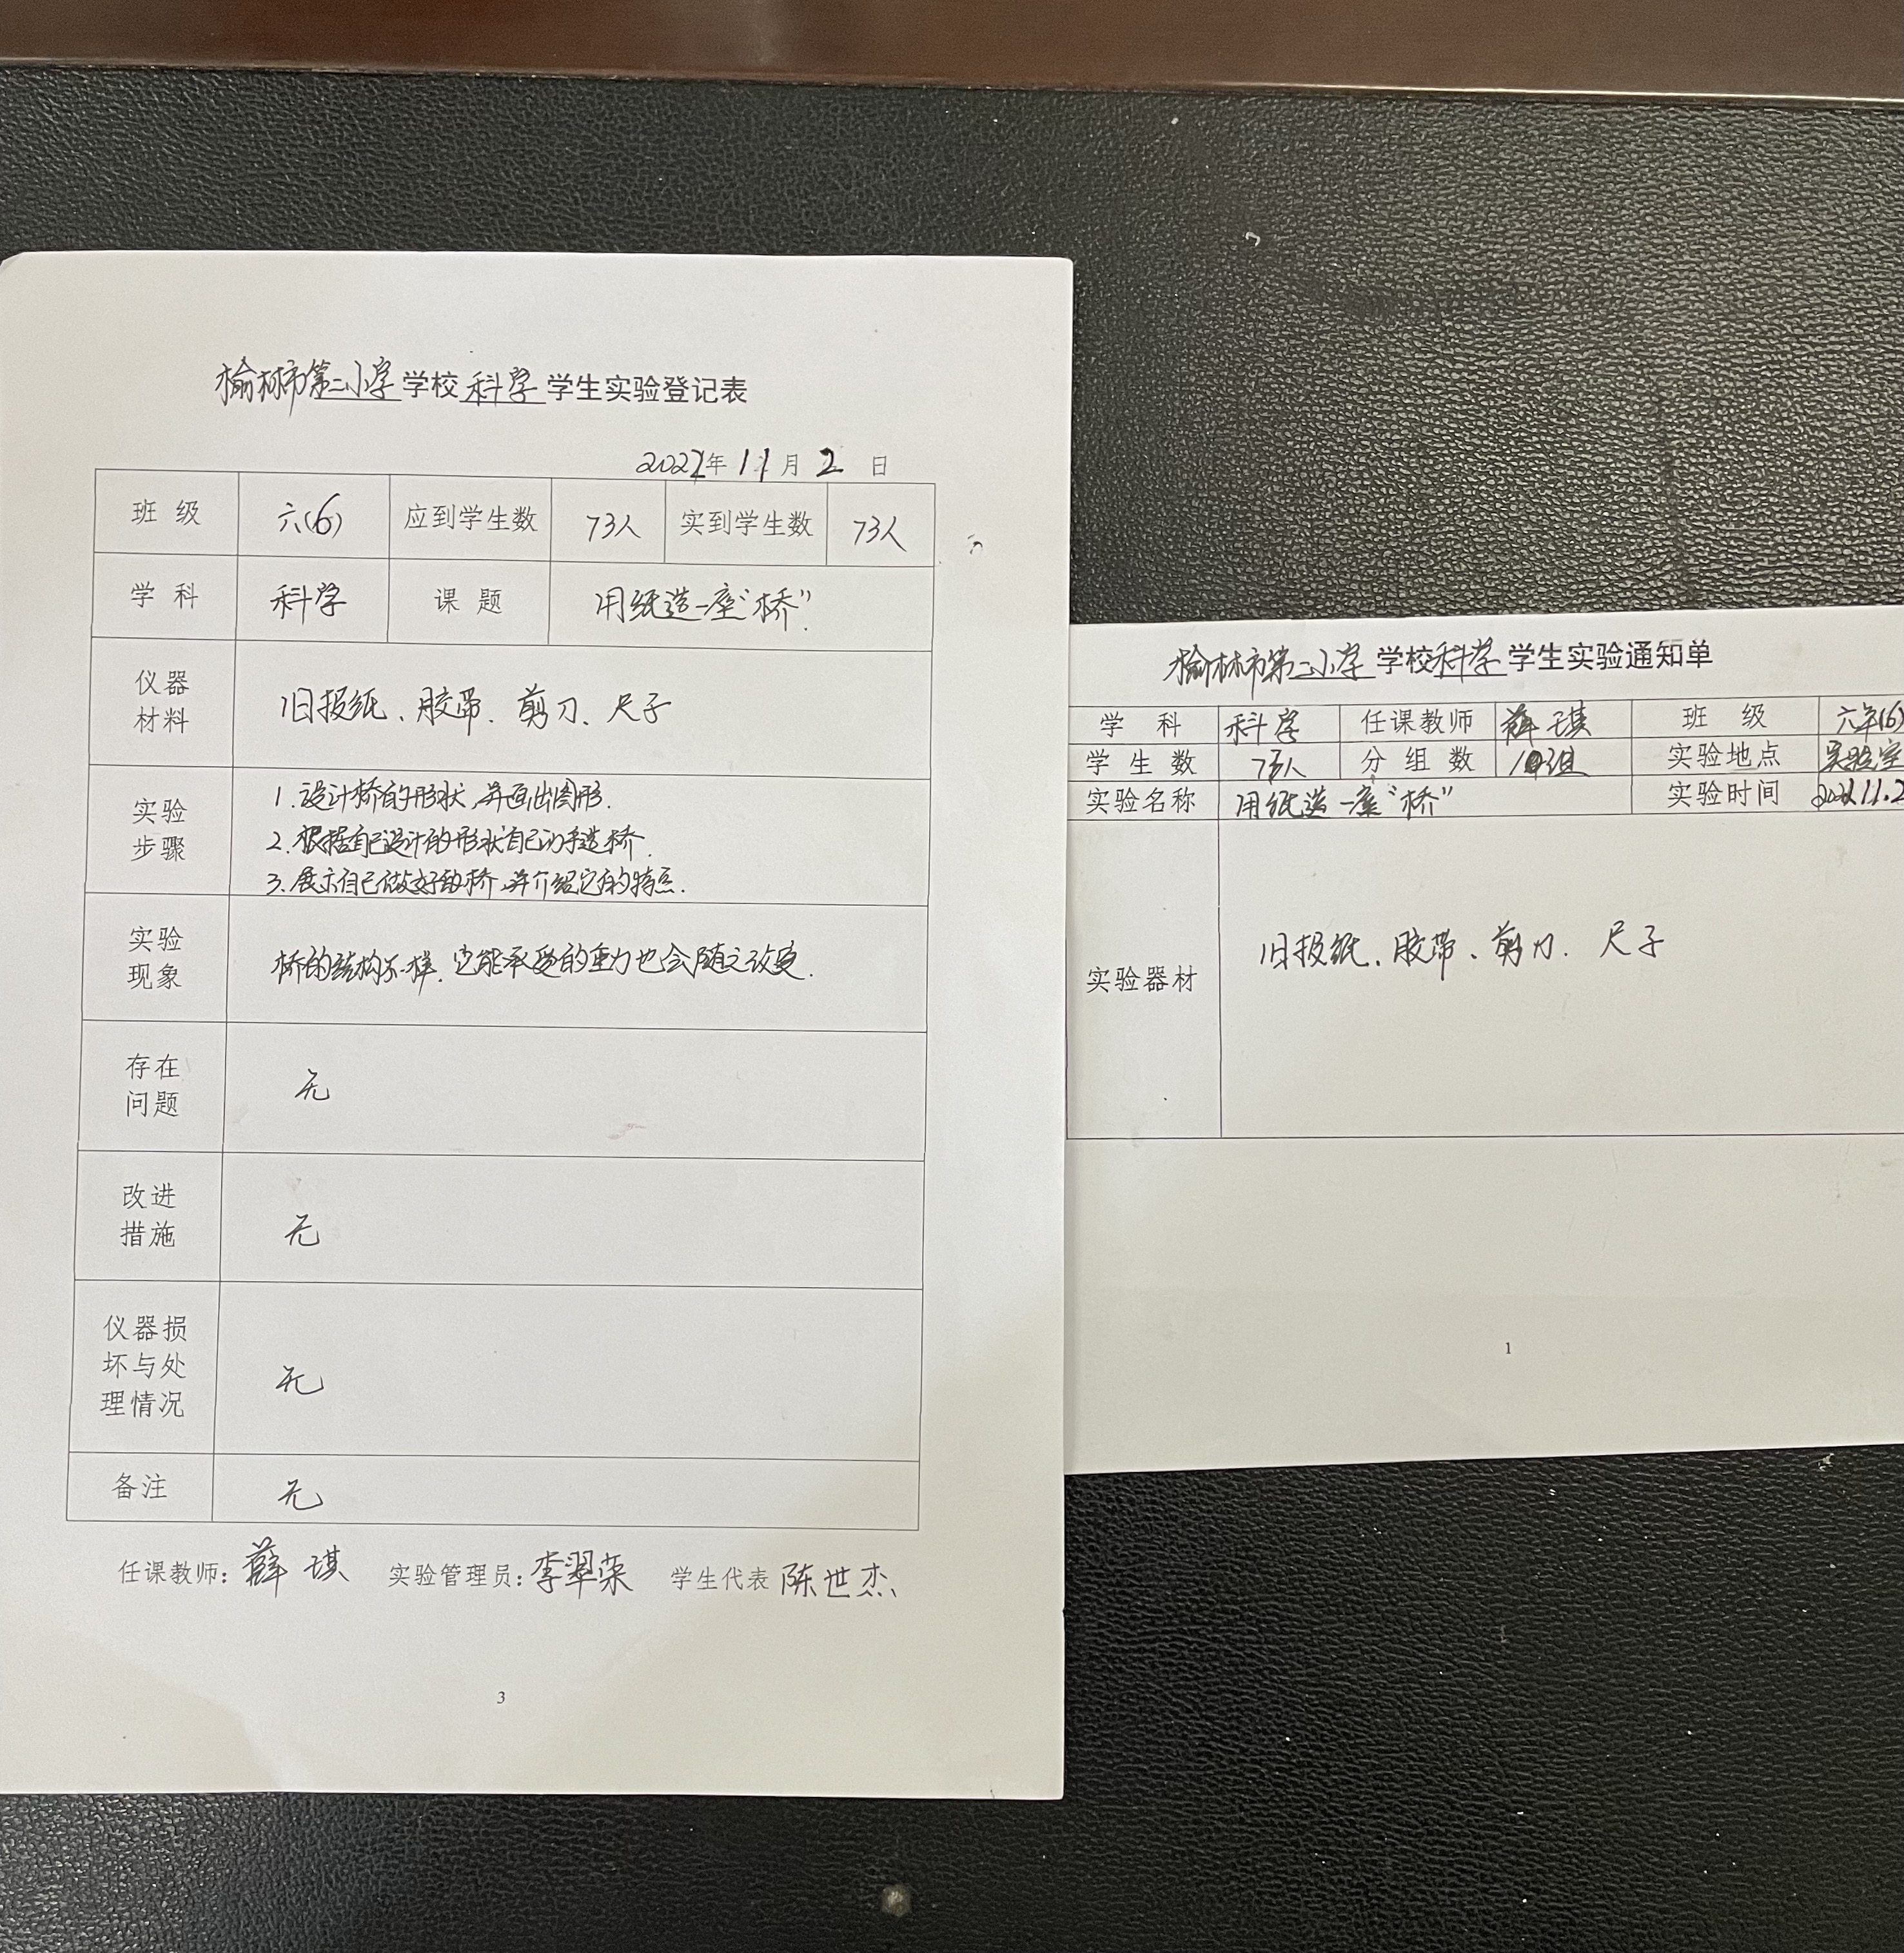 榆林市第二小学学校科学学生实验登记表
2022年11月2日
班级 六(6) 应到学生数 73人 实到学生数 73人
学科 科学 课题 用纸造一座“桥”.
仪器
材料
旧报纸、胶带、剪刀、尺子
实验
步骤
1.设计桥的形状,并画出图形.
2.根据自己设计的形状自己动手造桥.
3.展示自己做好的桥,并介绍它的特点.
实验
现象
桥的结构不一样,它能承受的重力也会随之改变.
存在
问题
无
改进
措施
无
仪器损
坏与处
理情况
无
备注 无
任课教师:薛琪 实验管理员:李翠荣 学生代表 陈世杰
3
榆林市第二小学学校科学学生实验通知单
学科 科学 任课教师 薛琪 班级 六年(6)
学生数 73人 分组数 10组 实验地点 实验室
实验名称 用纸造一座“桥” 实验时间 11.2
实验器材 旧报纸、胶带、剪刀、尺子
1